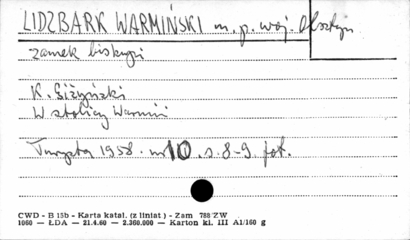 LIDZBARK WARMIŃSKI m. p. woj. Olsztyn
zamek biskupi
K. Giżyński
W stolicy Warmii
Turysta 1958. nr 10. s. 8-9 fot.
CWD - B 15b - Karta katal. (z liniat) - Zam 788/ZW
1060 — ŁDA — 21.4.60 — 2.360.000 — Karton kl. III A1/160 g